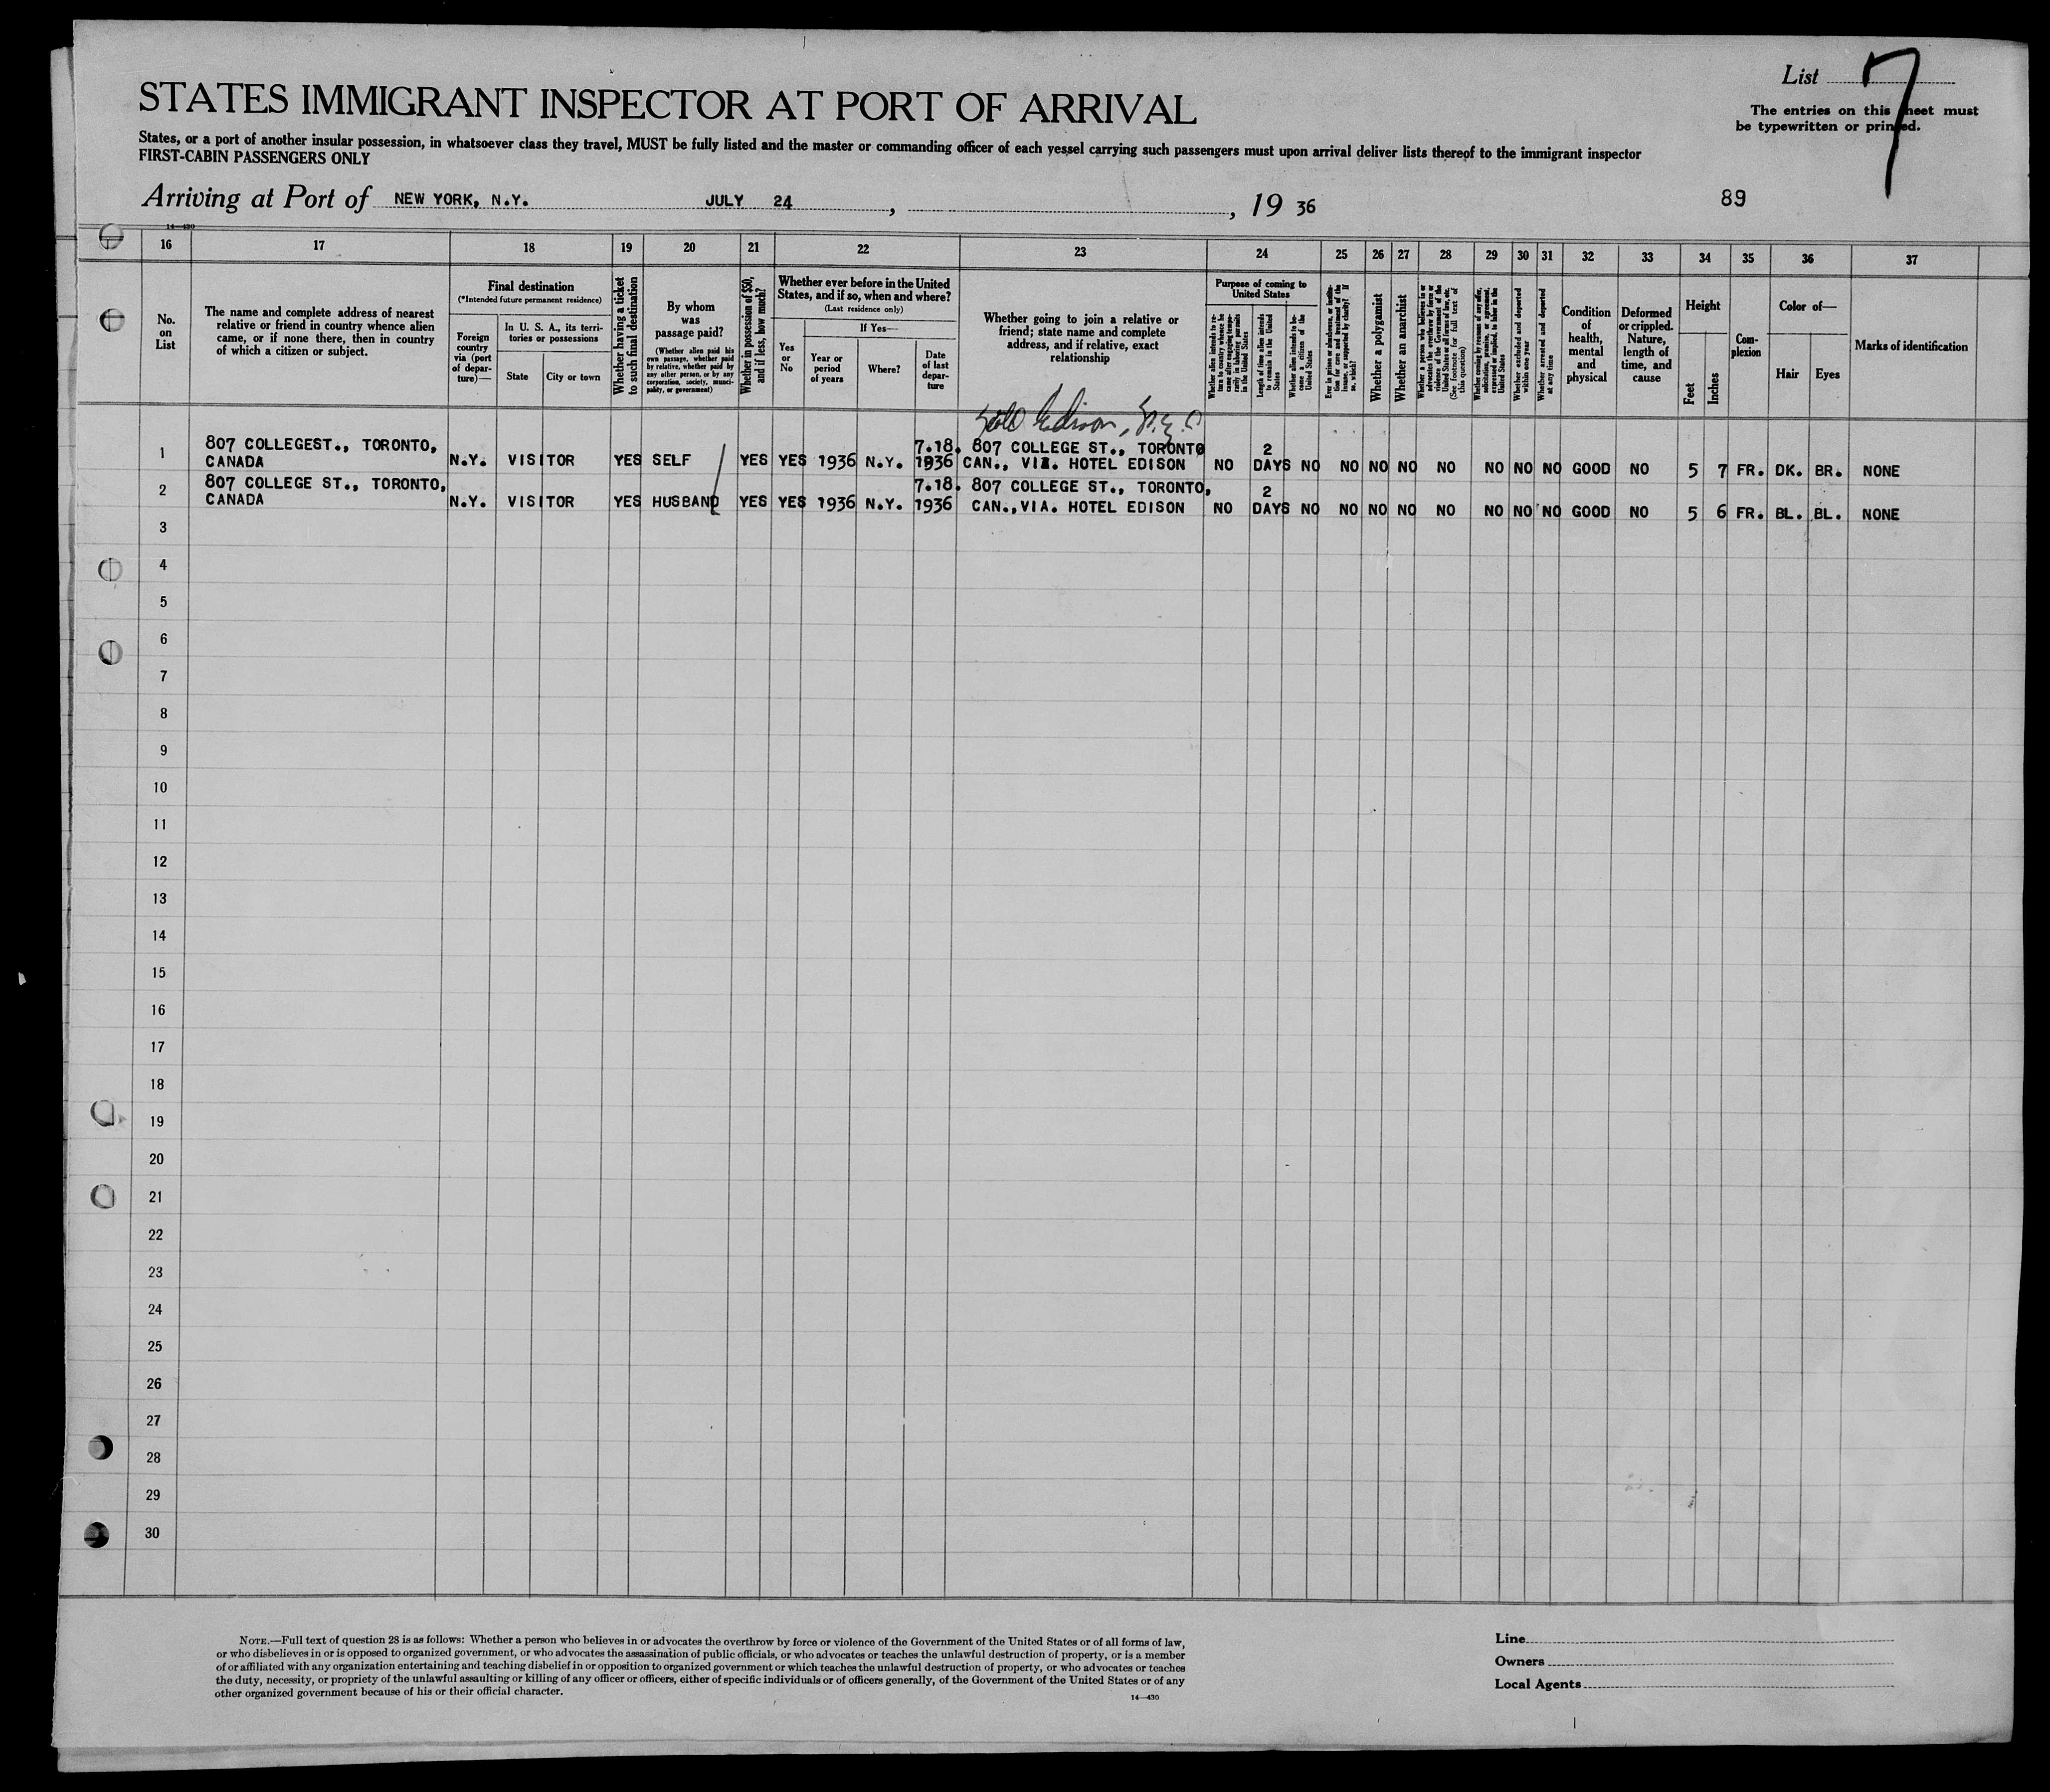 List 7
STATES IMMIGRANT INSPECTOR AT PORT OF ARRIVAL
The entries on this sheet must
be typewritten or printed.
States, or a port of another insular possession, in whatsoever class they travel, MUST be fully listed and the master or commanding officer of each vessel carrying such passengers must upon arrival deliver lists thereof to the immigrant inspector
FIRST-CABIN PASSENGERS ONLY
Arriving at Port of NEW YORK, N.Y. JULY 24, , 19 36
89
14—430
16 17 18 19 20 21 22 23 24 25 26 27 28 29 30 31 32 33 34 35 36 37
No.
on
List
The name and complete address of nearest
relative or friend in country whence alien
came, or if none there, then in country
of which a citizen or subject.
Final destination
(*Intended future permanent residence)
Foreign
country
via (port
of depar-
ture)—
In U. S. A., its terri-
tories or possessions
State
City or town
Whether having a ticket
to such final destination
By whom
was
passage paid?
(Whether alien paid his
own passage, whether paid
by relative, whether paid by
any other person, or by any
corporation, society, munici-
pality, or government)
Whether in possession of $50,
and if less, how much?
Whether ever before in the United
States, and if so, when and where?
(Last residence only)
Yes
or
No
If Yes—
Year or
period
of years
Where?
Date
of last
depar-
ture
Whether going to join a relative or
friend; state name and complete
address, and if relative, exact
relationship
Purpose of coming to
United States
Whether alien intends to re-
turn to country whence he
came after engaging tempo-
rarily in laboring pursuits
in the United States
Length of time alien intends
to remain in the United
States
Whether alien intends to be-
come a citizen of the
United States
Ever in prison or almshouse, or institu-
tion for care and treatment of the
insane, or supported by charity? If
so, which?
Whether a polygamist
Whether an anarchist
Whether a person who believes in or
advocates the overthrow by force or
violence of the Government of the
United States or all forms of law, etc.
(See footnote for full text of
this question)
Whether coming by reason of any offer,
solicitation, promise, or agreement,
expressed or implied, to labor in the
United States
Whether excluded and deported
within one year
Whether arrested and deported
at any time
Condition
of
health,
mental
and
physical
Deformed
or crippled.
Nature,
length of
time, and
cause
Height
Feet
Inches
Com-
plexion
Color of—
Hair
Eyes
Marks of identification
Edison, N.Y.C
1 807 COLLEGEST., TORONTO, 7.18. 807 COLLEGE ST., TORONTO 2
CANADA N.Y. VISITOR YES SELF YES YES 1936 N.Y. 1936 CAN., VIA. HOTEL EDISON NO DAYS NO NO NO NO NO NO NO NO GOOD NO 5 7 FR. DK. BR. NONE
2 807 COLLEGE ST., TORONTO, 7.18. 807 COLLEGE ST., TORONTO, 2
CANADA N.Y. VISITOR YES HUSBAND YES YES 1936 N.Y. 1936 CAN.,VIA. HOTEL EDISON NO DAYS NO NO NO NO NO NO NO NO GOOD NO 5 6 FR. BL. BL. NONE
3
4
5
6
7
8
9
10
11
12
13
14
15
16
17
18
19
20
21
22
23
24
25
26
27
28
29
30
NOTE.—Full text of question 28 is as follows: Whether a person who believes in or advocates the overthrow by force or violence of the Government of the United States or of all forms of law,
or who disbelieves in or is opposed to organized government, or who advocates the assassination of public officials, or who advocates or teaches the unlawful destruction of property, or is a member
of or affiliated with any organization entertaining and teaching disbelief in or opposition to organized government or which teaches the unlawful destruction of property, or who advocates or teaches
the duty, necessity, or propriety of the unlawful assaulting or killing of any officer or officers, either of specific individuals or of officers generally, of the Government of the United States or of any
other organized government because of his or their official character.
14—430
Line
Owners
Local Agents